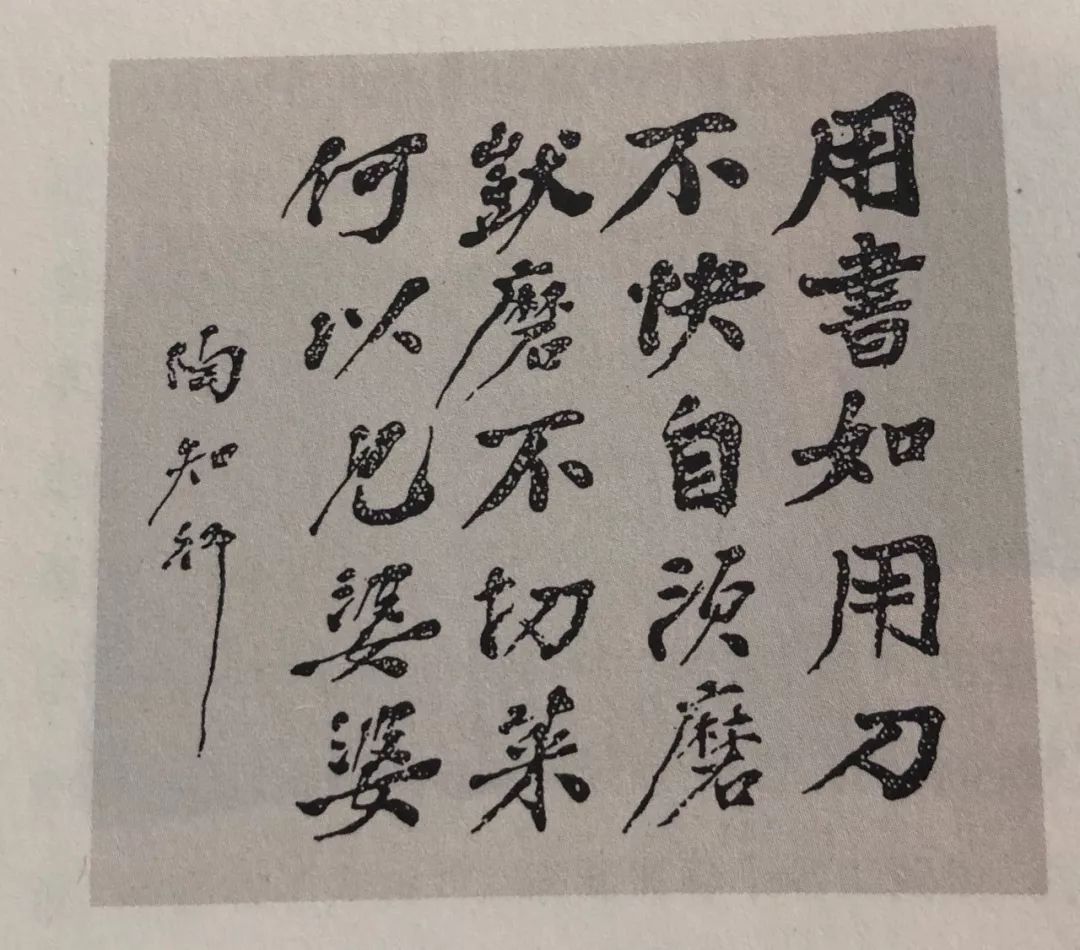 用書如用刀
不快自須磨
獃磨不切菜
何以見婆婆
陶知行